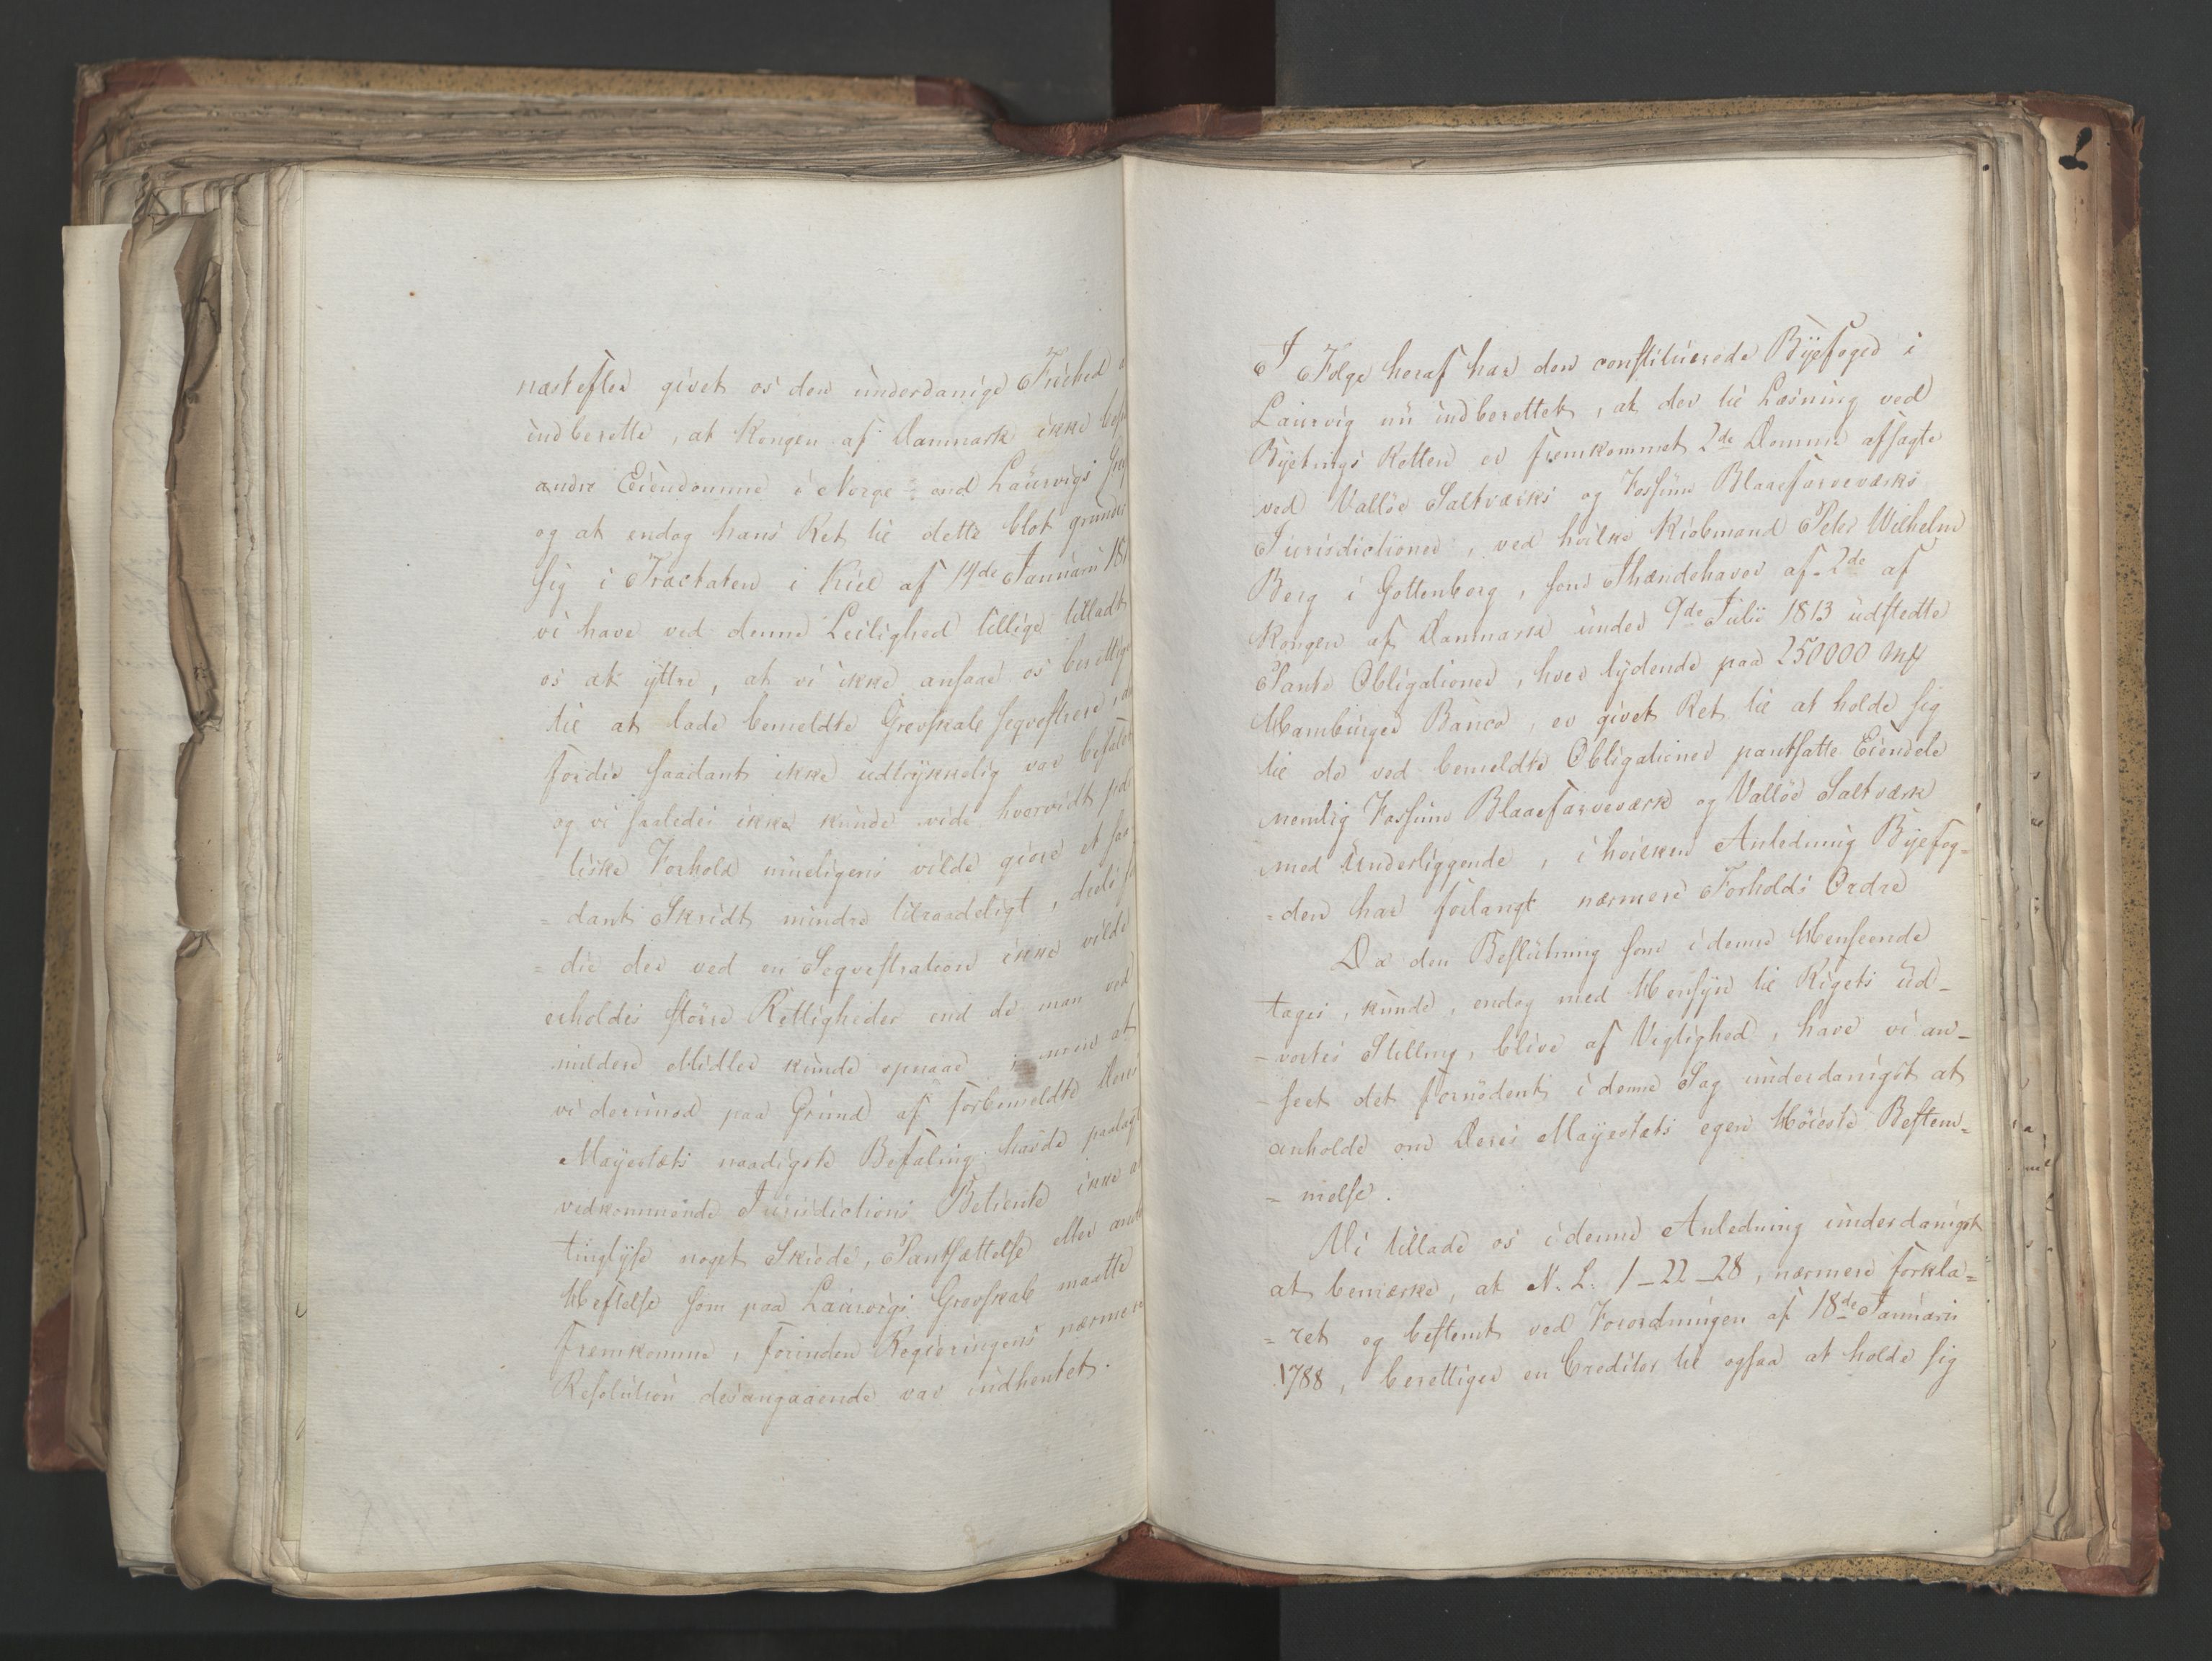 næstefter givet os den underdanige Friehed
indberette, at Kongen af Danmark ikke
andre Eiendomme i Norge end Laurvigs
og at endog hans Ret til dette blot grunder
sig i Tractaten i Kiel af 14de Januarii 181
vi have ved denne Leilighed tillige tilladt
os at yttre, at vi ikke ansaae os berettige
til at lade bemeldte Grevskab seqvestrere,
fordie saadant ikke udtrykkelig var befalet
og vi saaledes ikke kunde vide hvorvidt po
litiske Forhold mueligens vilde giøre et saa
= dant Skridt mindre tilraadeligt, deels
= die der ved en Seqvestration ikke vilde
erholdes større Rettigheder end de man ved
mildere Midler kunde opnaae, men at
vi derimod paa Grund af forbemeldte Deres
Mayestæts naadigste Befaling havde paalagt
vedkommende Jurisdictions Betiente ikke a
tinglyse noget Skiøde, Pantsættelse eller anden
Heftelse som paa Laurvigs Grevskab maatte
fremkomme, forinden Regieringens nærmere
Resolution desangaaende var indhentet.
I Følge heraf har den constituerede Byefoged i
Laurvig nu indberettet, at der til Læsning ved
Byetings Retten er fremkommet 2de Domme afsagte
ved Valløe Saltværks og Fossum Blaaefarveværks
Jurisdictioner, ved hvilke Kiøbmand Peter Wilhelm
Berg i Gottenborg, som Ihændehaver af 2de af
Kongen af Danmark under 9de Julii 1813 udstedte
Pante Obligationer, hver lydende paa 250000 Mk
Hamburger Banco, er givet Ret til at holde sig
til de ved bemeldte Obligationer pantsatte Eiendele
nemlig Fossum Blaaefarveværk og Valløe Saltværk
med Underliggende, i hvilken Anledning Byefog=
=den har forlangt nærmere Forholds Ordre
Da den Beslutning som i denne Henseende
tages, kunde, endog med Hensyn til Rigets ud-
-vortes Stilling, blive af Vigtighed, have vi an-
-seet det fornødent i denne Sag underdanigst at
anholde om Deres Mayestæts egen Høieste Bestem=
= melse.
Vi tillade os i denne Anledning underdanigst
at bemærke, at N. L. 1-22-28, nærmere forkla=
=ret og bestemt ved Forordningen af 18de Januarii
1788, berettiger en Creditor til ogsaa at holde sig